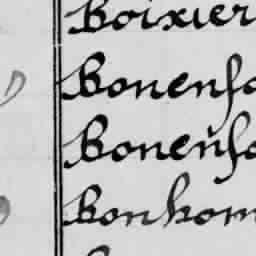 Boixier
Bonenfa
Bonenfa
Bonhom